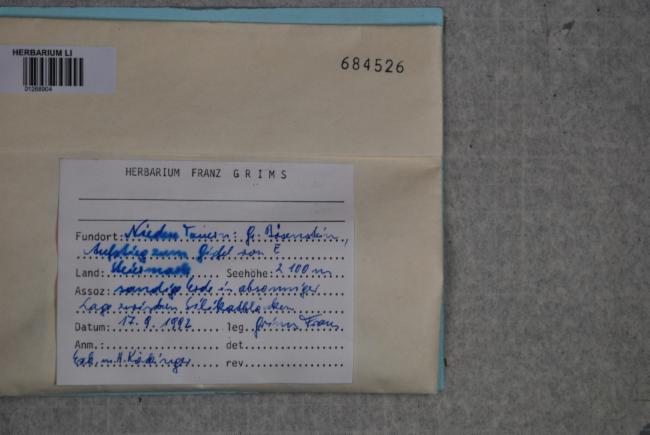 HERBARIUM LI
01268904
684526
HERBARIUM FRANZ GRIMS
Fundort: Niedere Tauern: Gr. Bösenstein,
Aufstieg zum Gipfel von E
Land: Steiermark Seehöhe: 2100 m
Assoz: sandige Erde in absonniger
Lage zwischen Silikatblöcken
Datum: 17.9.1992 leg. Grims Franz
Anm.: det
Exk. m. H. Köckinger rev